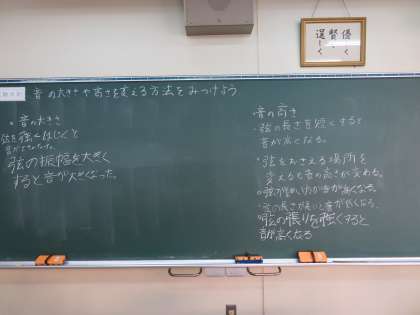 優しく
賢く
逞しく
音の大きさや高さを変える方法をみつけよう
・音の大きさ
弦を強くはじくと
音が大きくなった。
弦の振幅を大きく
すると音が大きくなった。
音の高さ
・弦の長さを短くすると
音が高くなる。
・弦をおさえる場所を
変えると音の高さが変わる。
・弦が細い方が音が高くなる。
・弦の長さが長いと音が低くなる。
・弦の張りを強くすると
音が高くなる